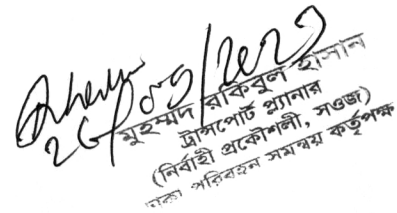 মুহম্মদ রকিবুল হাসান
ট্রান্সপোর্ট প্ল্যানার
(নির্বাহী প্রকৌশলী, সওজ)
ঢাকা পরিবহন সমন্বয় কর্তৃপক্ষ